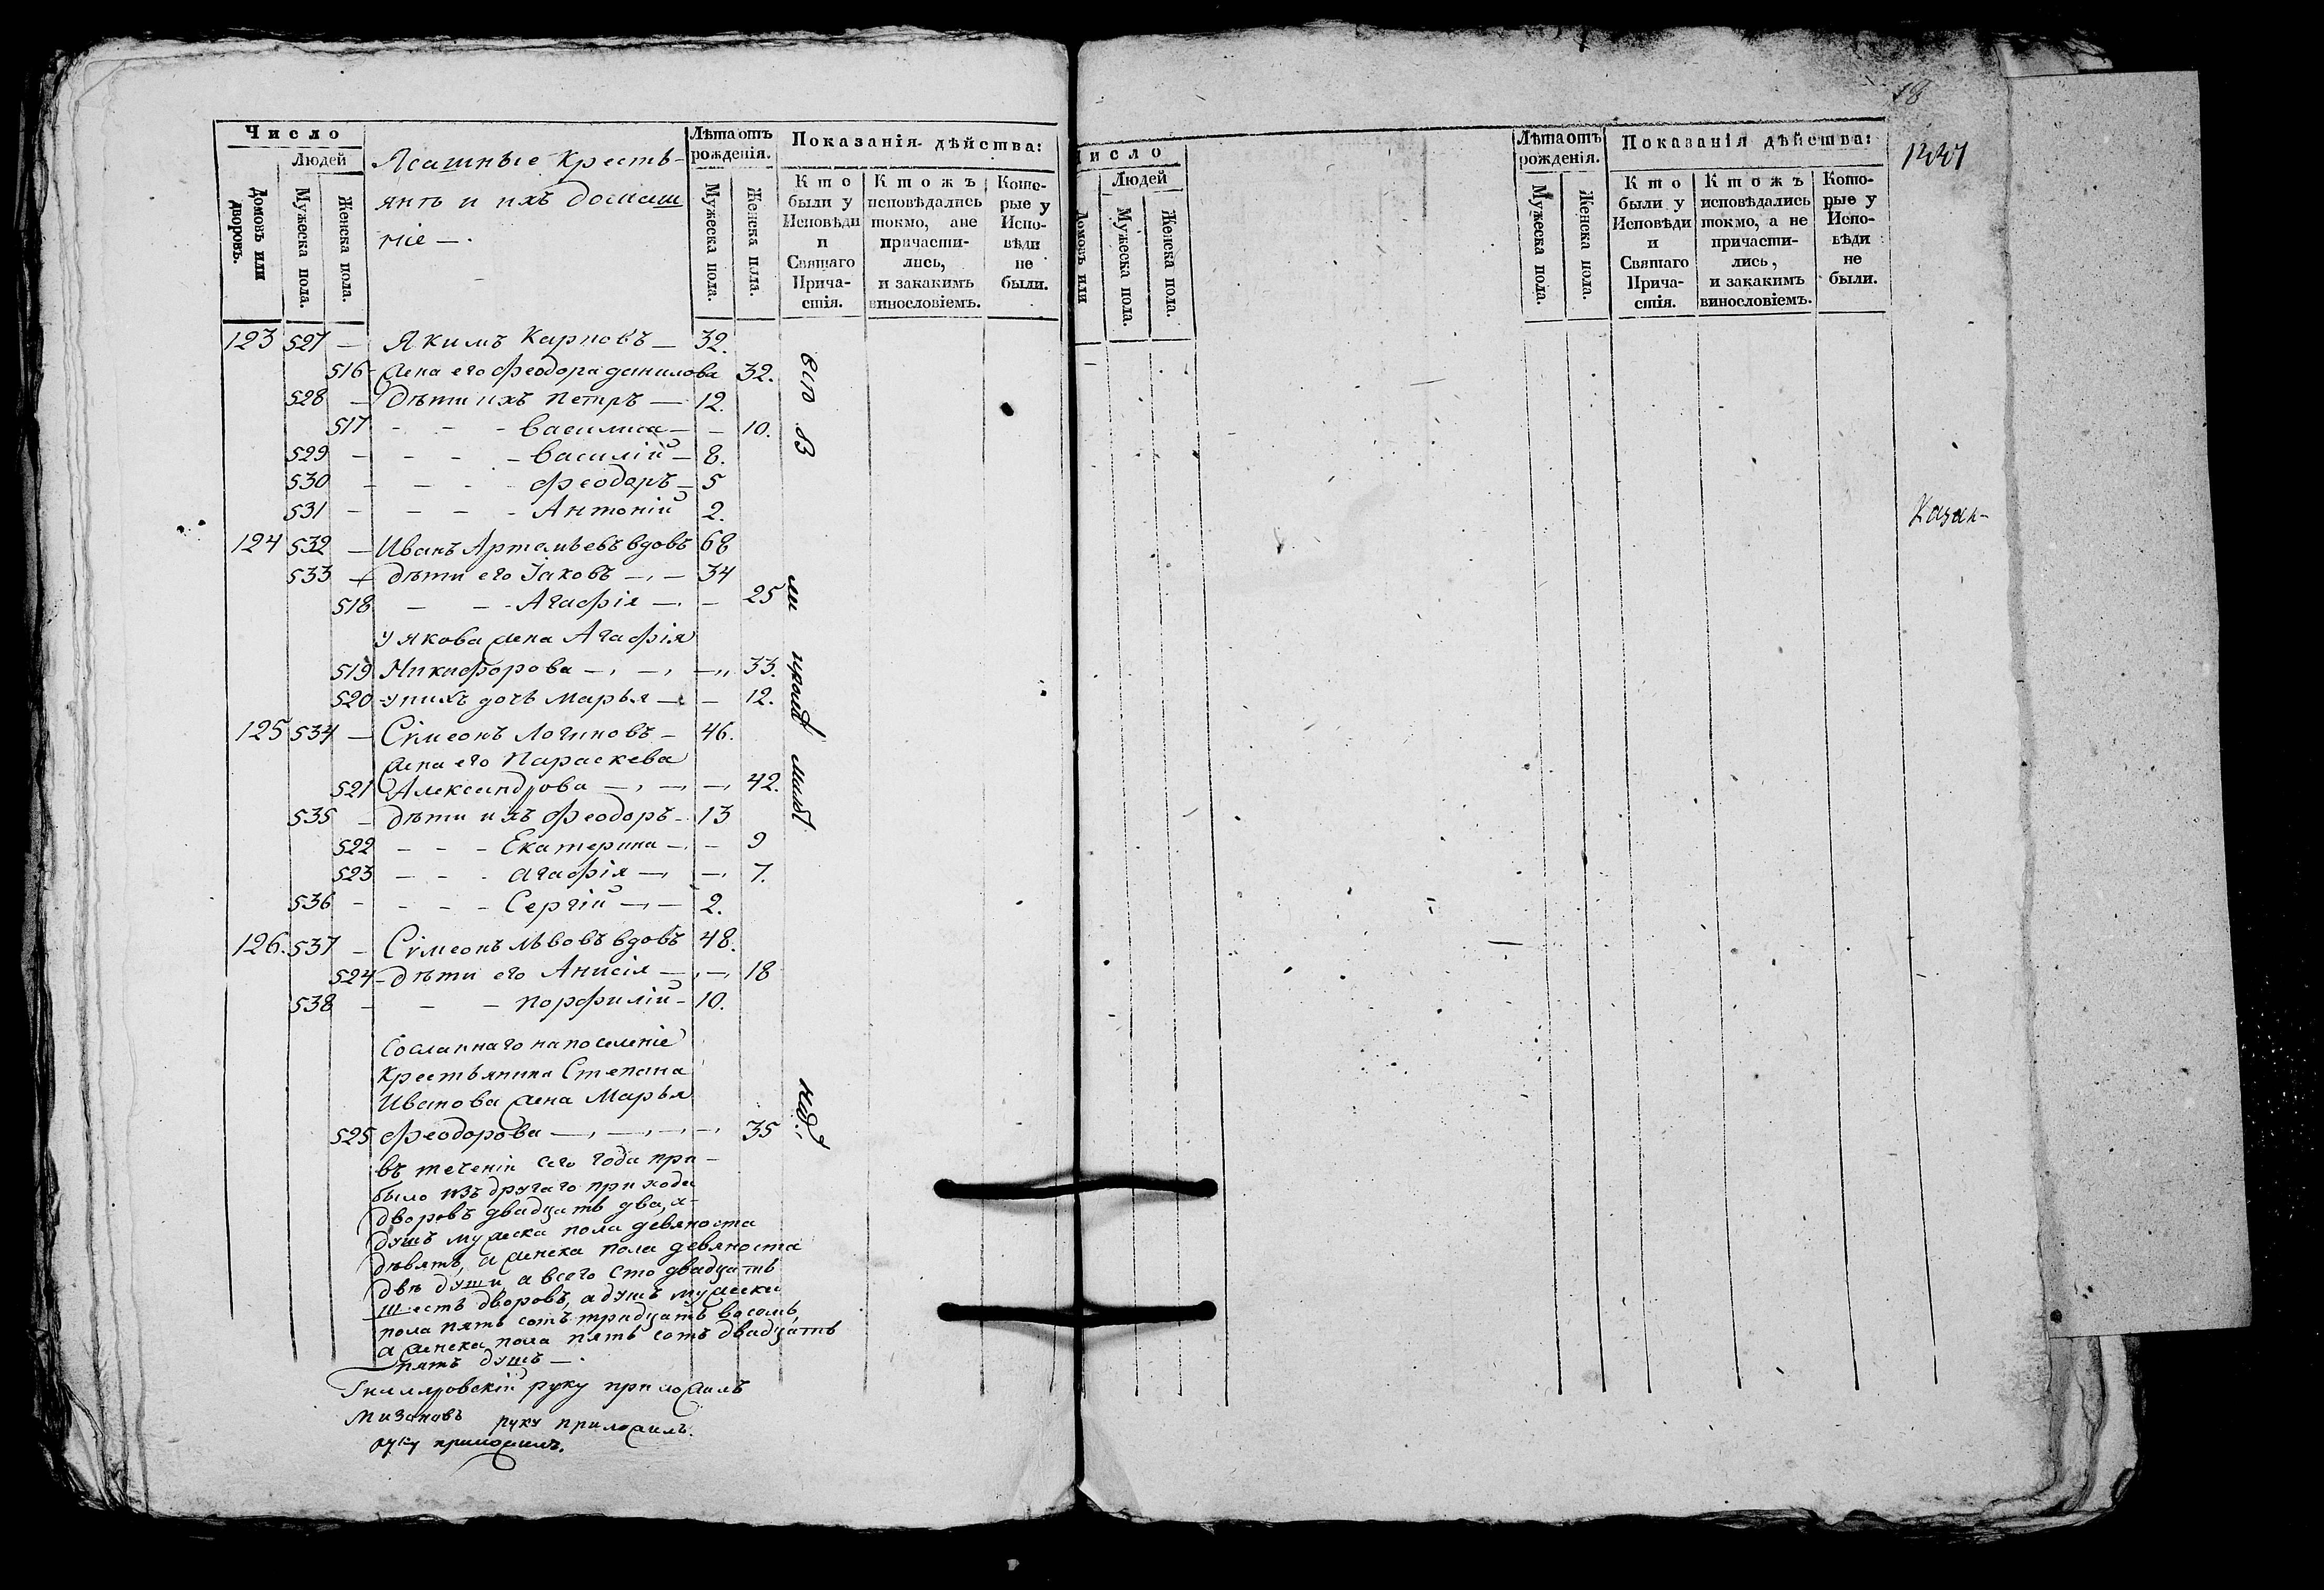 Число
Людей
Домовъ или дворовъ.
Мужеска пола.
Женска пола.
Ясашные Кресть-
янѣ и ихъ домаш
ніе —.
Лѣта отъ рожденія.
Мужеска пола.
Женска пола.
Показанія дѣйства:
Кто были у Исповѣди и Святаго Причастія.
Ктожъ исповѣдались токмо, а не причастились, и закакимъ винословіемъ.
Которые у Исповѣди не были.
123 527 — Якимъ Карповъ — 32.
516 - жена его Феодора данилова 32.
528 — дѣти ихъ Петръ — 12.
517 - - - Василиса — — 10.
529 — - - - Василій — 8.
530 - — - - Феодоръ — 5
531 - — — - Антоній 2.
124 532 — Иванъ Артемьевъ вдовъ 68
533 — дѣти его Іаковъ —,— 34
518 — — - Агафія —. — 25
у Якова жена Агафія
519 Никифорова —, —, —,, 33.
520 - у нихъ дочь Марья — — 12.
125 534 — Сѵмеонъ Логиновъ — 46.
жена его Параскева
521 Александрова —, —, —, 42.
535 — дѣти ихъ Феодоръ - 13
522 — - - Екатерина —, — 9
523 — - - агафія —, —, 7.
536 - - — - Сергій —,— 2.
126. 537 — Сѵмеонъ Львовъ вдовъ 48.
524 - дѣти его Анисія —,—, 18
538 — - — Порфилій - 10.
Сосланнаго на поселеніе
Крестьянина Степана
Иванова жена Марья
525 Феодорова —,—,—,—, 35
въ теченіи сего года при-
было изъ другаго прихода
дворовъ двадцать два, а
душъ мужеска пола девяноста
дѣвять, а женска пола девяноста
двѣ души а всего сто двадцать
шесть дворовъ, а душъ мужеска
пола пять сотъ тридцать восемь,
а женска пола пять сотъ двадцать
пять душъ —.
руку приложилъ
Мизоновъ руку приложилъ.
руку приложилъ.
18
Число
Людей
Домовъ или
Мужеска пола.
Женска пола.
Лѣта отъ рожденія.
Мужеска пола.
Женска пола.
Показанія дѣйства:
Кто были у Исповѣди и Святаго Причастія.
Ктожъ исповѣдались токмо, а не причастились, и закакимъ винословіемъ.
Которые у Исповѣди не были.
Казан-